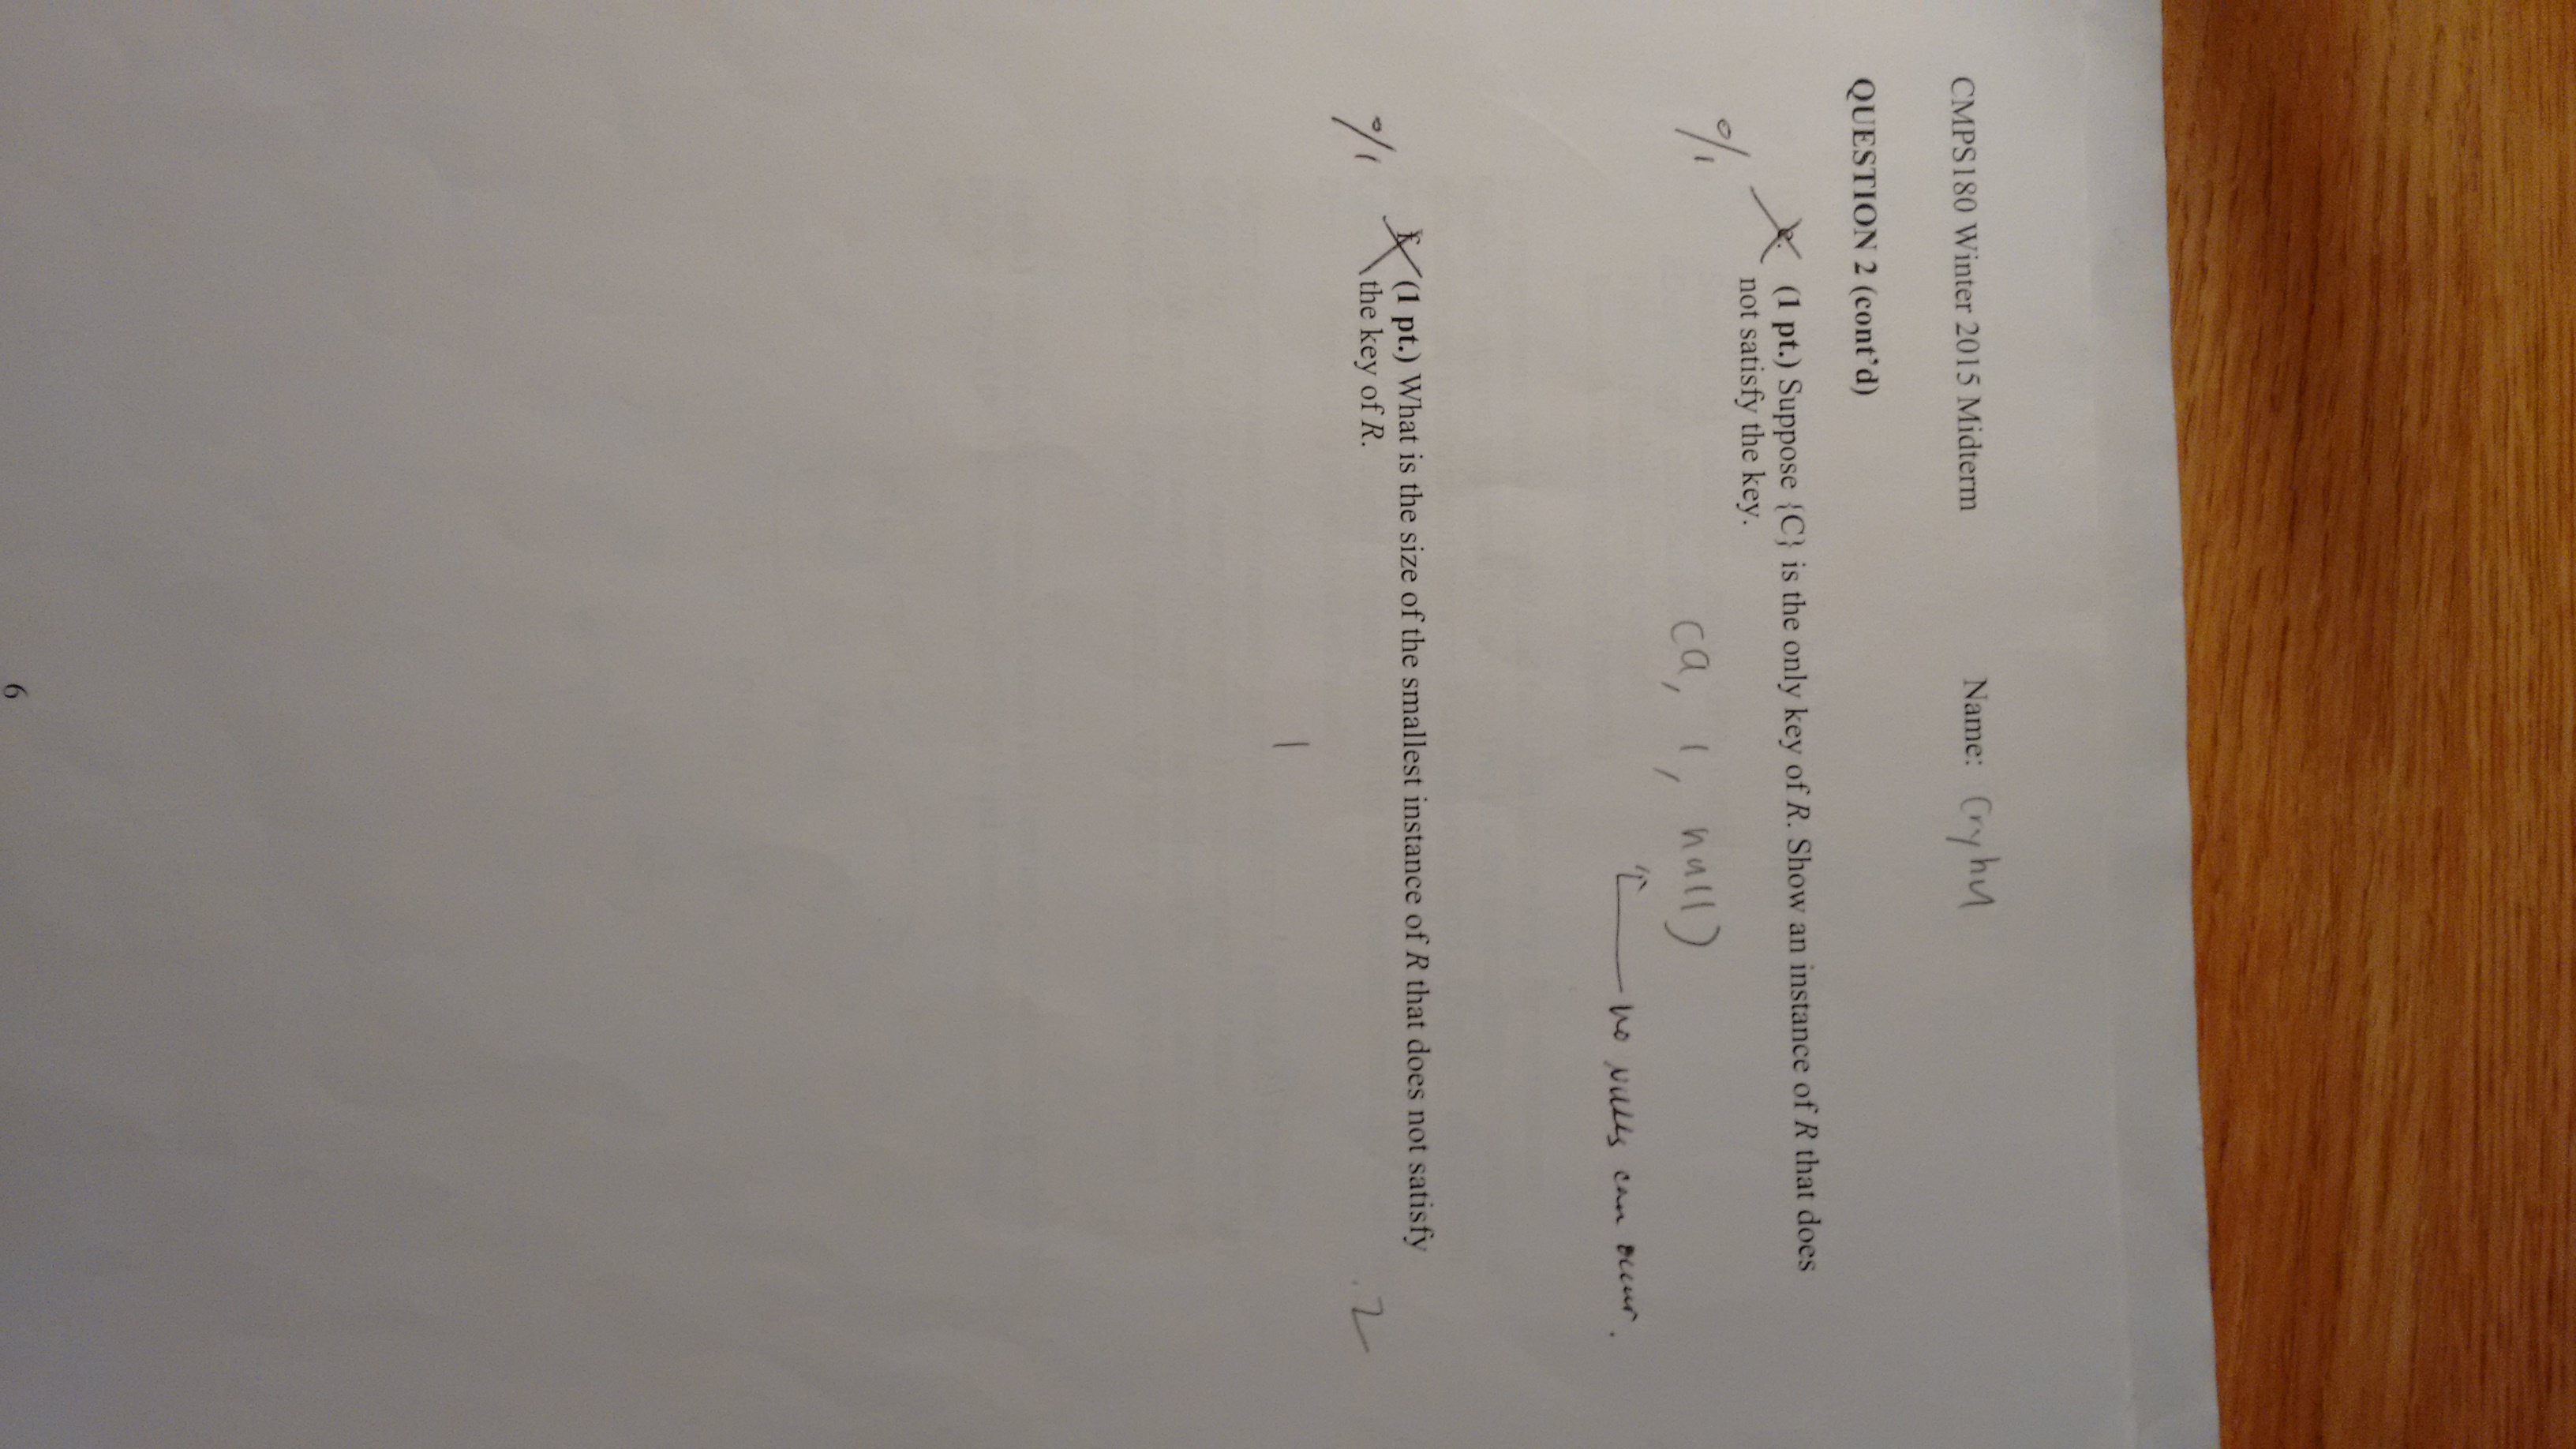 CMPS180 Winter 2015 Midterm Name:
QUESTION 2 (cont'd)
e. (1 pt.) Suppose {C} is the only key of R. Show an instance of R that does
not satisfy the key.
0/1
(a, 1, null)
no nulls can occur.
f. (1 pt.) What is the size of the smallest instance of R that does not satisfy
the key of R.
0/1
2
1
6